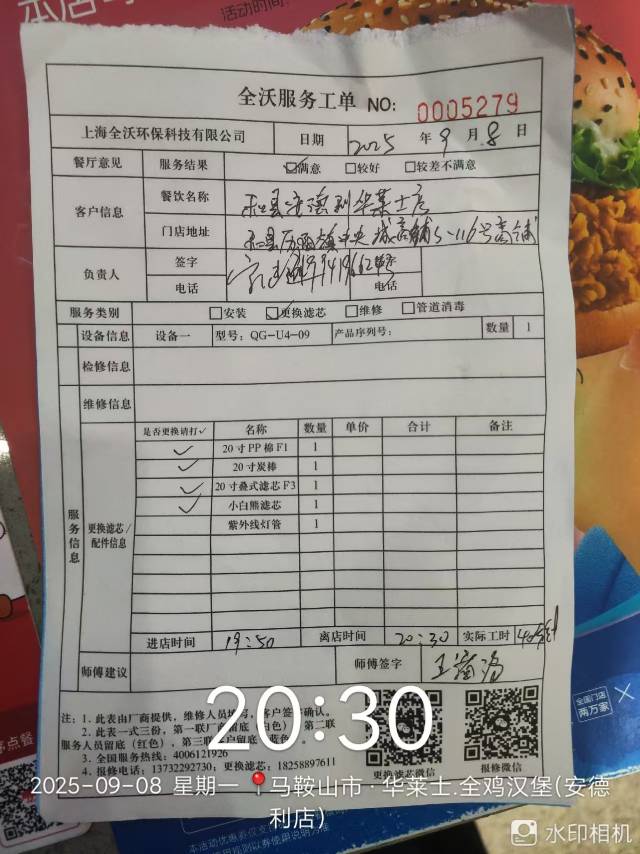 本店
活动时间:
全沃服务工单 NO: 0005279
上海全沃环保科技有限公司 日期 2025 年 9 月 8 日
餐厅意见 服务结果 ☑满意 □较好 □较差不满意
客户信息 餐饮名称 和县安德利华莱士店
门店地址 和县历阳镇中央城商铺 116号商铺
负责人 签字 签字
电话 电话
服务类别 □安装 ☑更换滤芯 □维修 □管道消毒
设备信息 设备一 型号: QG-U4-09 产品序列号: 数量 1
检修信息
维修信息
服务信息 更换滤芯/配件信息
是否更换请打✓ 名称 数量 单价 合计 备注
✓ 20寸PP棉F1 1
✓ 20寸炭棒 1
✓ 20寸叠式滤芯F3 1
✓ 小白熊滤芯 1
紫外线灯管 1
进店时间 19:50 离店时间 20:30 实际工时 40分钟
师傅建议 师傅签字
20:30
注: 1. 此表由厂商提供, 维修人员填写, 客户签字确认。
2. 此表一式三份, 第一联厂商留底(白色) 第二联
服务人员留底(红色), 第三联客户留底(蓝色)。
3. 全国服务热线: 4006121926
4. 报修电话: 13732292730; 更换滤芯: 18258897611
更换滤芯微信 报修微信
全国门店
两万家
2025-09-08 星期一 马鞍山市·华莱士.全鸡汉堡(安德
利店)
点餐
本活动优惠仅支
券以使用说明为准
水印相机